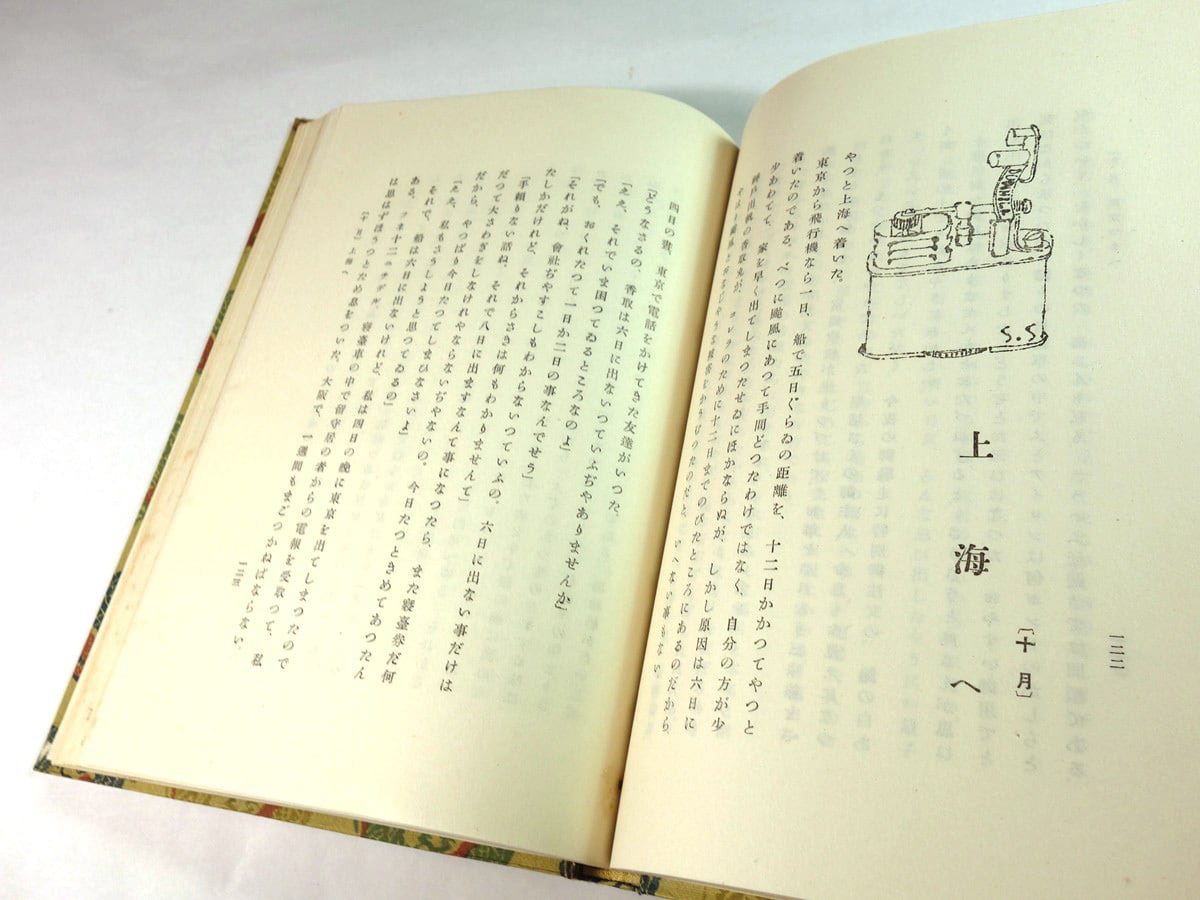 一二二
上海へ
〔十月〕
S.S
やつと上海へ着いた。
東京から飛行機なら一日、船で五日ぐらゐの距離を、十二日かかつてやつと
着いたのである。べつに颱風にあつて手間どつたわけではなく、自分の方が少
少あわてて、家を早く出てしまつたせゐにほかならぬが、しかし原因は六日に
神戸出帆の香取丸が、コレラのために十二日までのびたところにあるのだから、
まんざら颱風とおなじやうな被害をかうむつたのだと、いへない事もない。
四日の晝、東京で電話をかけてきた友達がいつた。
「どうなさるの、香取は六日に出ないつていふぢやありませんか」
「ええ、それでいま困つてゐるところなのよ」
「でも、おくれたつて一日か二日の事なんでせう」
「それがね、會社ぢやすこしもわからないつていふの。六日に出ない事だけは
たしかだけれど、それからさきは何もわかりませんて」
「手頼りない話ね、それで八日に出ますなんて事になつたら、また寝臺券だ何
だつて大さわぎをしなけれやならないぢやないの。今日たつときめてあつたん
だから、やつぱり今日たつてしまひなさいよ」
「ええ、私もさうしようと思つてゐるの」
それで、船は六日に出ないけれど、私は四日の晩に東京を出てしまつたので
ある。
フネ十二ニチデル、寝臺車の中で留守居の者からの電報を受取つて、私
は思はずほうつとため息をついた。大阪で、一週間もまごつかねばならない。
〔十月〕上海へ
一二三